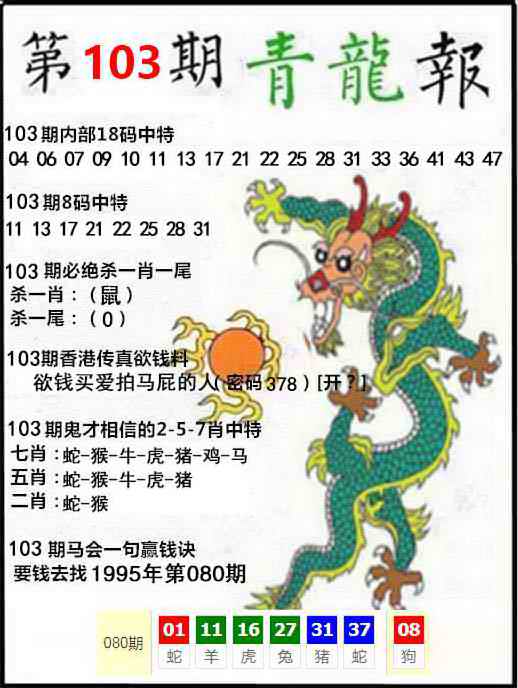 第103期青龍報
103期内部18码中特
04 06 07 09 10 11 13 17 21 22 25 28 31 33 36 41 43 47
103期8码中特
11 13 17 21 22 25 28 31
103期必绝杀一肖一尾
杀一肖：（鼠）
杀一尾：（0）
103期香港传真欲钱料
欲钱买爱拍马屁的人（密码378）[开？]
103期鬼才相信的2-5-7肖中特
七肖：蛇-猴-牛-虎-猪-鸡-马
五肖：蛇-猴-牛-虎-猪
二肖：蛇-猴
103期马会一句赢钱诀
要钱去找1995年第080期
080期 01 11 16 27 31 37 08
蛇 羊 虎 兔 猪 蛇 狗